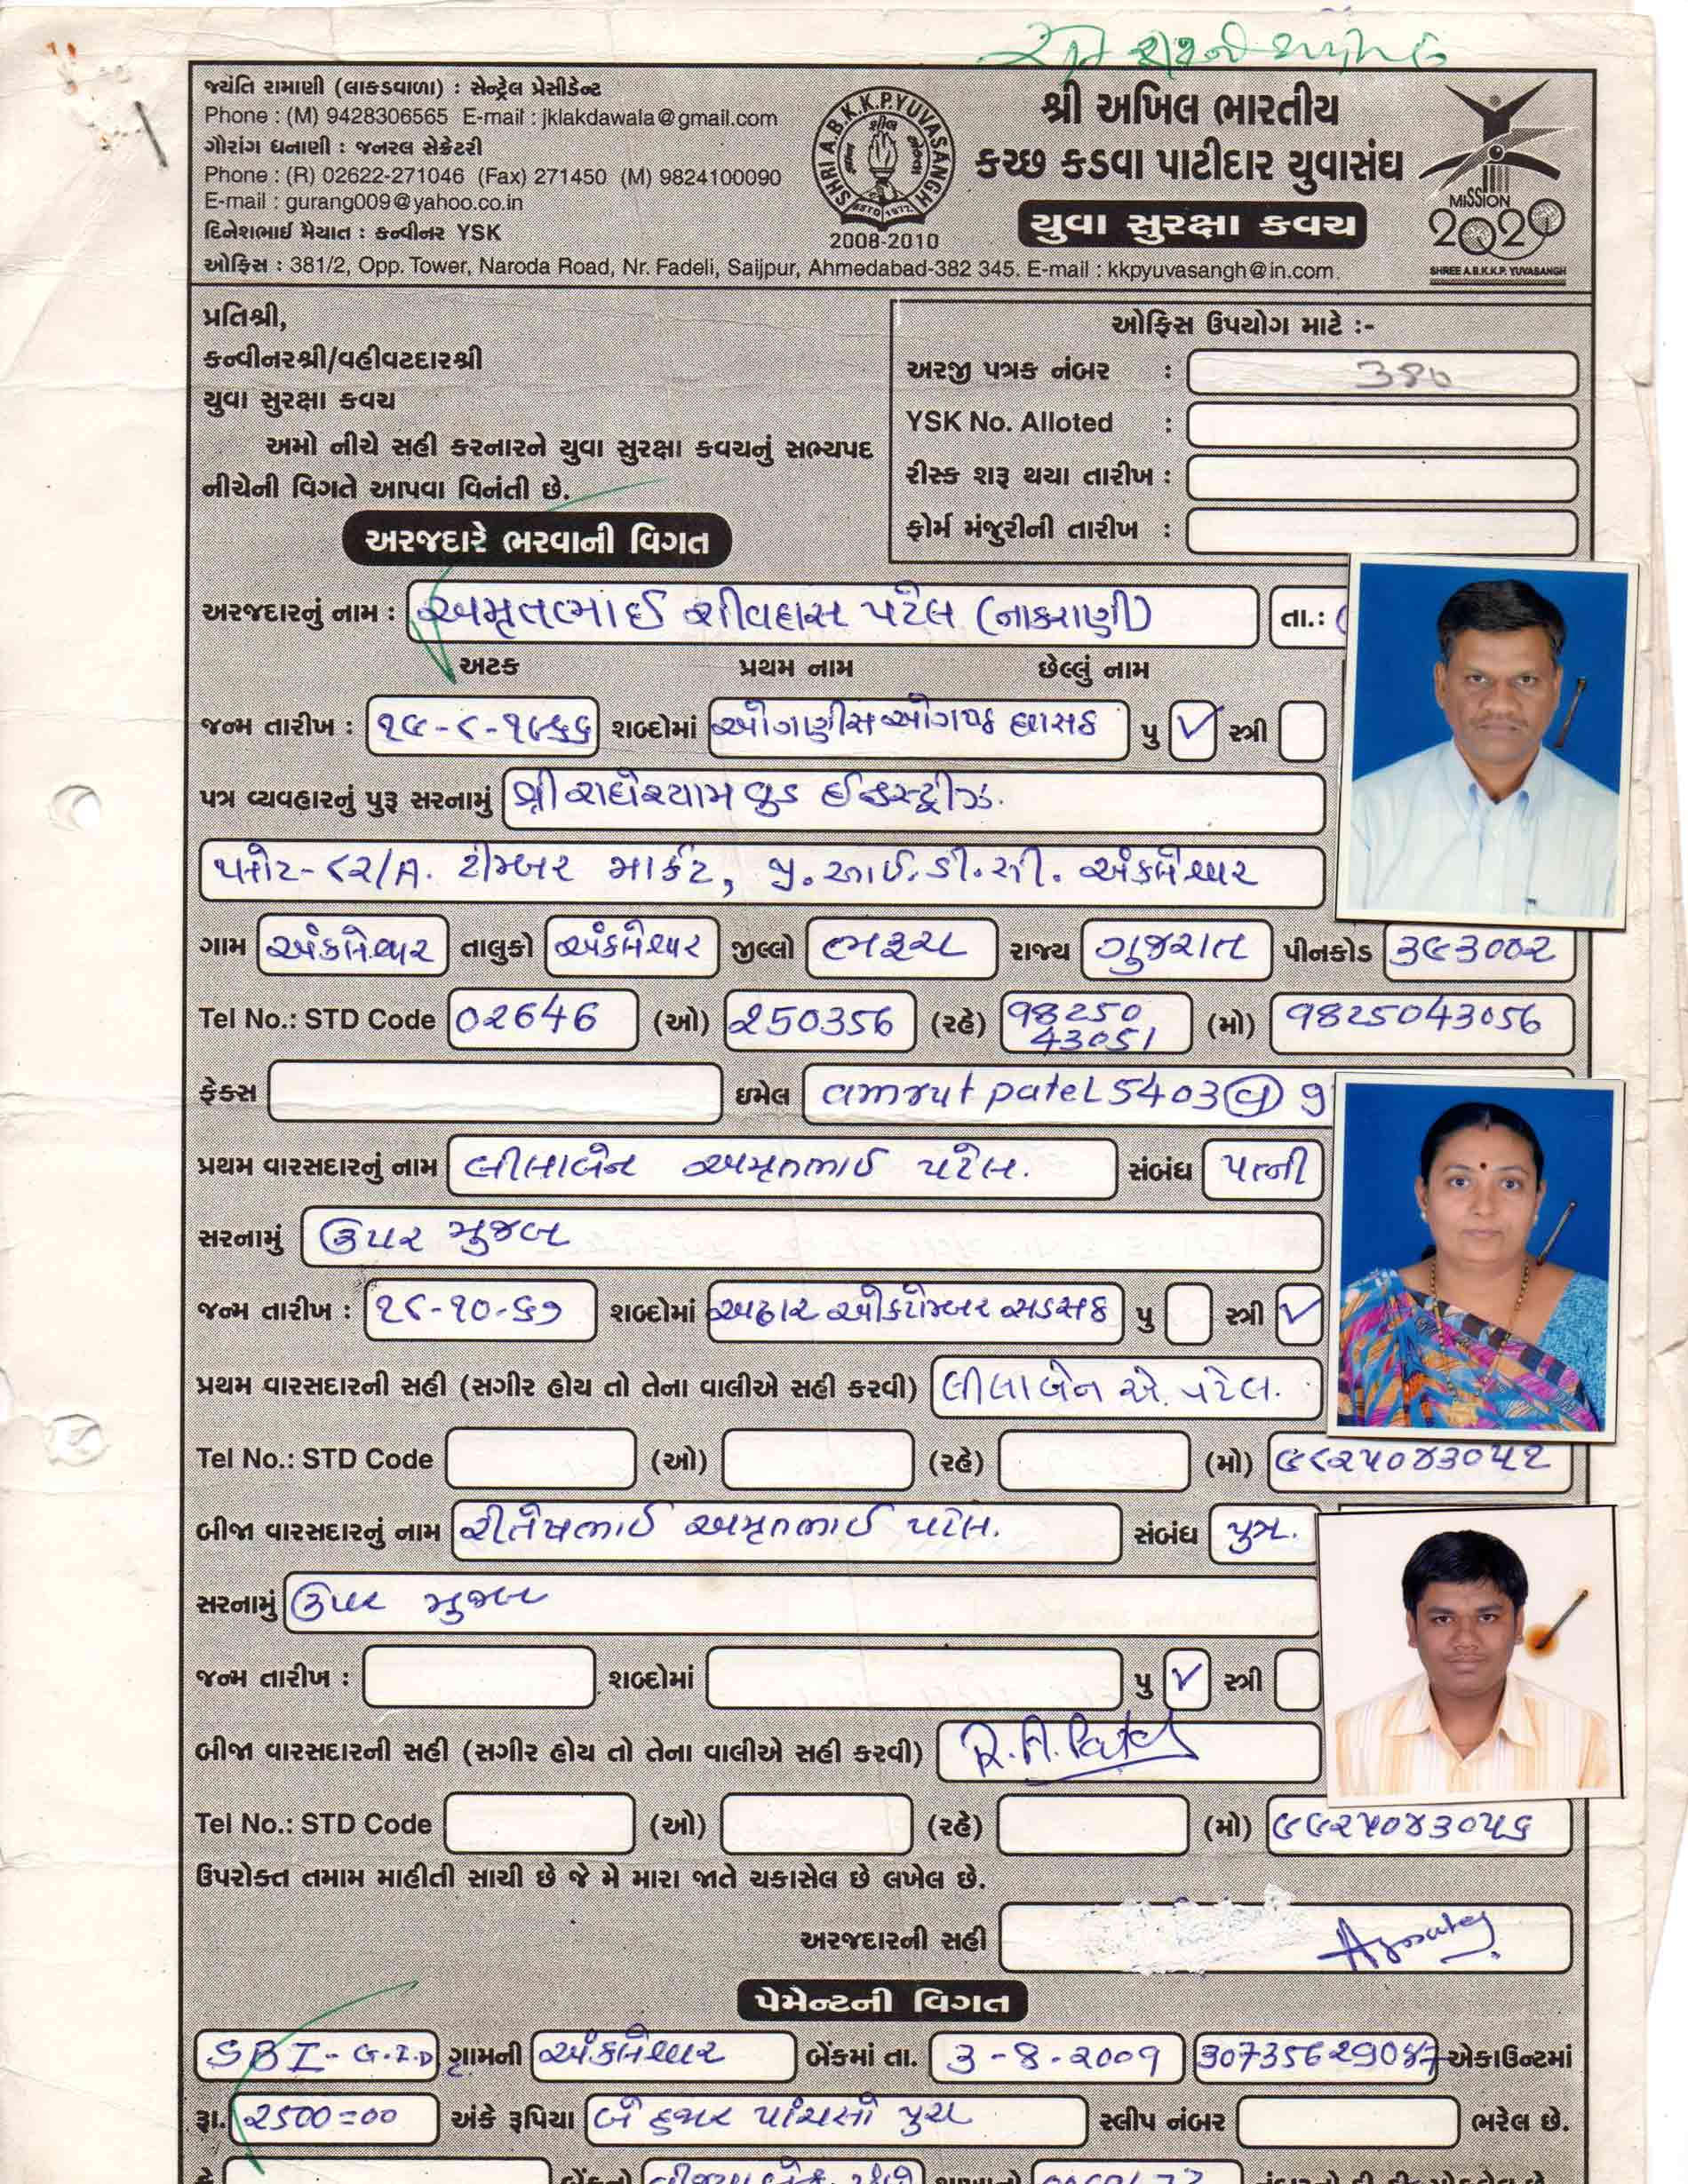 જયંતિ રામાણી (લાકડાવાળા) : સેન્ટ્રલ પ્રેસીડેન્ટ
Phone : (M) 9428306565 E-mail : jklakdawala@gmail.com
ગૌરાંગ ધનાણી : જનરલ સેક્રેટરી
Phone : (R) 02622-271046 (Fax) 271450 (M) 9824100090
E-mail : gurang009@yahoo.co.in
દિનેશભાઈ મૈયાત : કન્વીનર YSK
SHRI A.B.K.K.P.YUVASANGH
ESTD 1972
2008-2010
શ્રી અખિલ ભારતીય
કચ્છ કડવા પાટીદાર યુવાસંઘ
યુવા સુરક્ષા કવચ
MISSION
2020
SHREE A.B.K.K.P. YUVASANGH
ઓફિસ : 381/2, Opp. Tower, Naroda Road, Nr. Fadeli, Saijpur, Ahmedabad-382 345. E-mail : kkpyuvasangh@in.com.
પ્રતિશ્રી,
કન્વીનરશ્રી/વહીવટદારશ્રી
યુવા સુરક્ષા કવચ
અમો નીચે સહી કરનારને યુવા સુરક્ષા કવચનું સભ્યપદ
નીચેની વિગતે આપવા વિનંતી છે.
ઓફિસ ઉપયોગ માટે :-
અરજી પત્રક નંબર :
YSK No. Alloted :
રીસ્ક શરૂ થયા તારીખ :
ફોર્મ મંજુરીની તારીખ :
અરજદારે ભરવાની વિગત
અરજદારનું નામ : અમૃતભાઈ શીવદાસ પટેલ (નાકરાણી) તા.:
અટક પ્રથમ નામ છેલ્લું નામ
જન્મ તારીખ : ૧૯-૮-૧૯૬૬ શબ્દોમાં પુ ✓ સ્ત્રી
પત્ર વ્યવહારનું પુરૂ સરનામું શ્રી રાધેશ્યામ વુડ ઈન્ડસ્ટ્રીઝ.
પ્લોટ-૮૨/A. ટીમ્બર માર્કેટ, જી.આઈ.ડી.સી. અંકલેશ્વર
ગામ અંકલેશ્વર તાલુકો અંકલેશ્વર જીલ્લો ભરૂચ રાજ્ય ગુજરાત પીનકોડ ૩૯૩૦૦૨
Tel No.: STD Code 02646 (ઓ) 250356 (રહે) 98250 43051 (મો) 9825043056
ફેક્સ ઇમેલ amrutpatel5403@g
પ્રથમ વારસદારનું નામ લીલાબેન અમૃતભાઈ પટેલ. સંબંધ પત્ની
સરનામું ઉપર મુજબ
જન્મ તારીખ : ૧૮-૧૦-૬૭ શબ્દોમાં અઢાર ઓકટોમ્બર સડસઠ પુ સ્ત્રી ✓
પ્રથમ વારસદારની સહી (સગીર હોય તો તેના વાલીએ સહી કરવી) લીલાબેન એ. પટેલ.
Tel No.: STD Code (ઓ) (રહે) (મો) ૯૮૨૫૦૪૩૦૫૧
બીજા વારસદારનું નામ રીતેષભાઈ અમૃતભાઈ પટેલ. સંબંધ પુત્ર.
સરનામું ઉપર મુજબ
જન્મ તારીખ : શબ્દોમાં પુ ✓ સ્ત્રી
બીજા વારસદારની સહી (સગીર હોય તો તેના વાલીએ સહી કરવી) R.A.Patel
Tel No.: STD Code (ઓ) (રહે) (મો) ૯૮૨૫૦૪૩૦૫૬
ઉપરોક્ત તમામ માહીતી સાચી છે જે મે મારા જાતે ચકાસેલ છે લખેલ છે.
અરજદારની સહી
પેમેન્ટની વિગત
SBI-G.I.D ગ્રામની અંકલેશ્વર બેંકમાં તા. 3-8-2009 30735629047 એકાઉન્ટમાં
રૂા. 2500=00 અંકે રૂપિયા બે હજાર પાંચસો પુરા સ્લીપ નંબર ભરેલ છે.